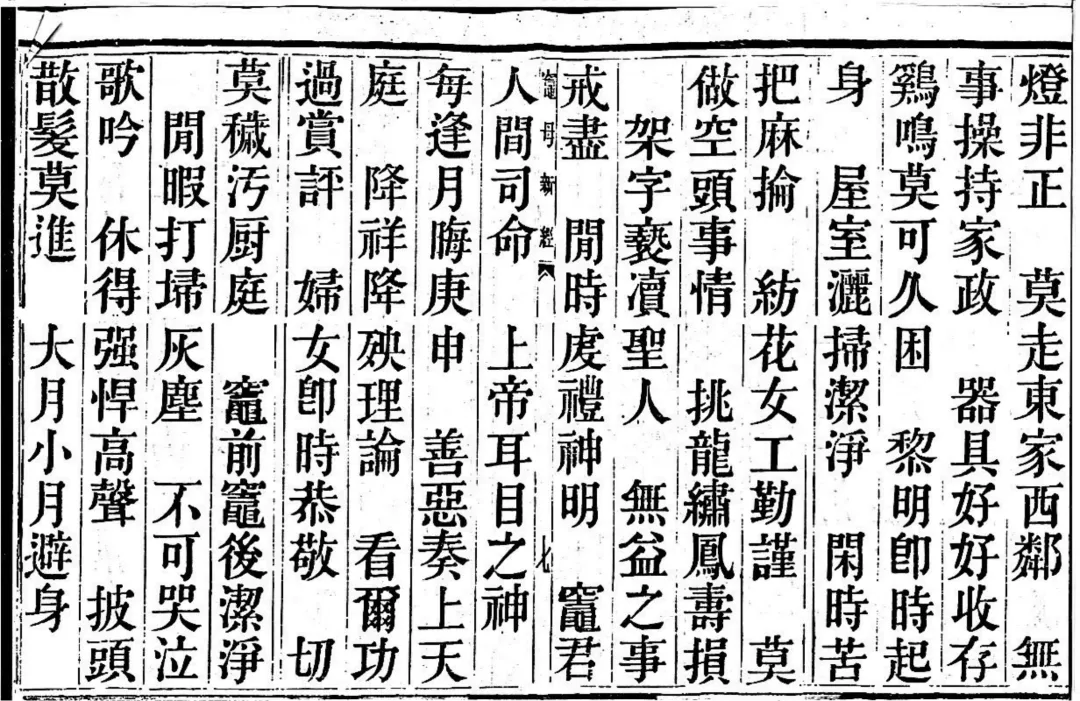 燈非正　莫走東家西鄰　無
事操持家政　器具好好收存
鷄鳴莫可久困　黎明卽時起
身　屋室灑掃潔淨　閑時苦
把麻掄　紡花女工勤謹　莫
做空頭事情　挑龍繡鳳壽損
架字褻瀆聖人　無益之事
戒盡　閒時虔禮神明　竈君
竈母新經　八
人間司命　上帝耳目之神
每逢月晦庚申　善惡奏上天
庭　降祥降殃理論　看爾功
過賞評　婦女卽時恭敬　切
莫穢汚厨庭　竈前竈後潔淨
閒暇打埽灰塵　不可哭泣
歌吟　休得强悍高聲　披頭
散髮莫進　大月小月避身